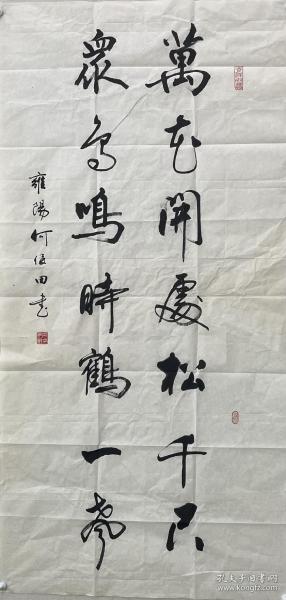 萬花開處松千尺
衆鳥鳴時鶴一聲
雍陽何俊田書
孔夫子旧书网
www.kongfz.com